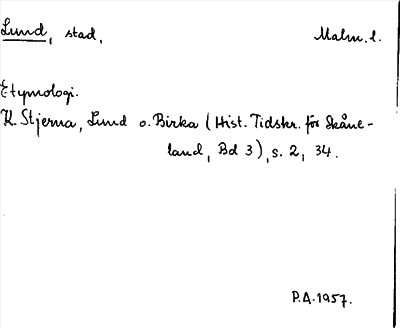 Lund, stad, Malm. l.
Etymologi.
K. Stjerna, Lund o. Birka (Hist. Tidskr. för Skåne-
land, Bd 3), s. 2, 34.
P.A. 1957.